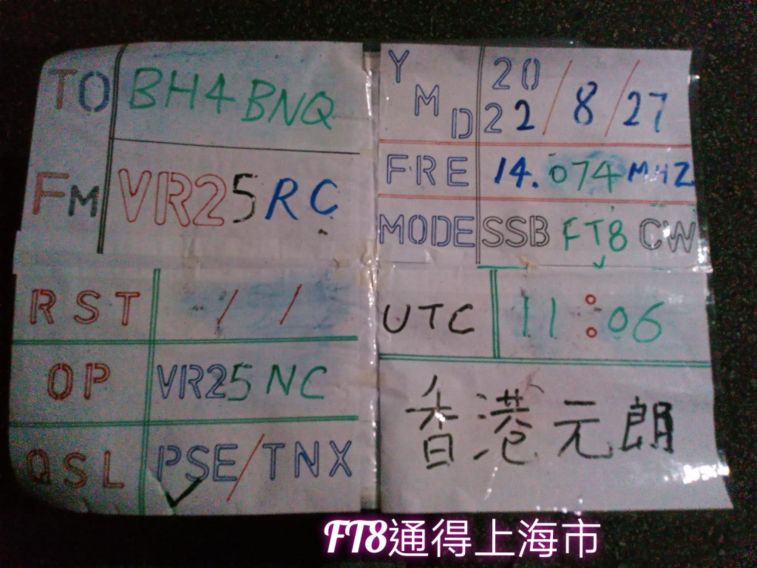 TO BH4BNQ
FM VR25RC
Y M D 2022/8/27
FRE 14.074 MHZ
MODE SSB FT8 CW
RST / /
UTC 11:06
OP VR25NC
QSL PSE/TNX
香港元朗
FT8通得上海市